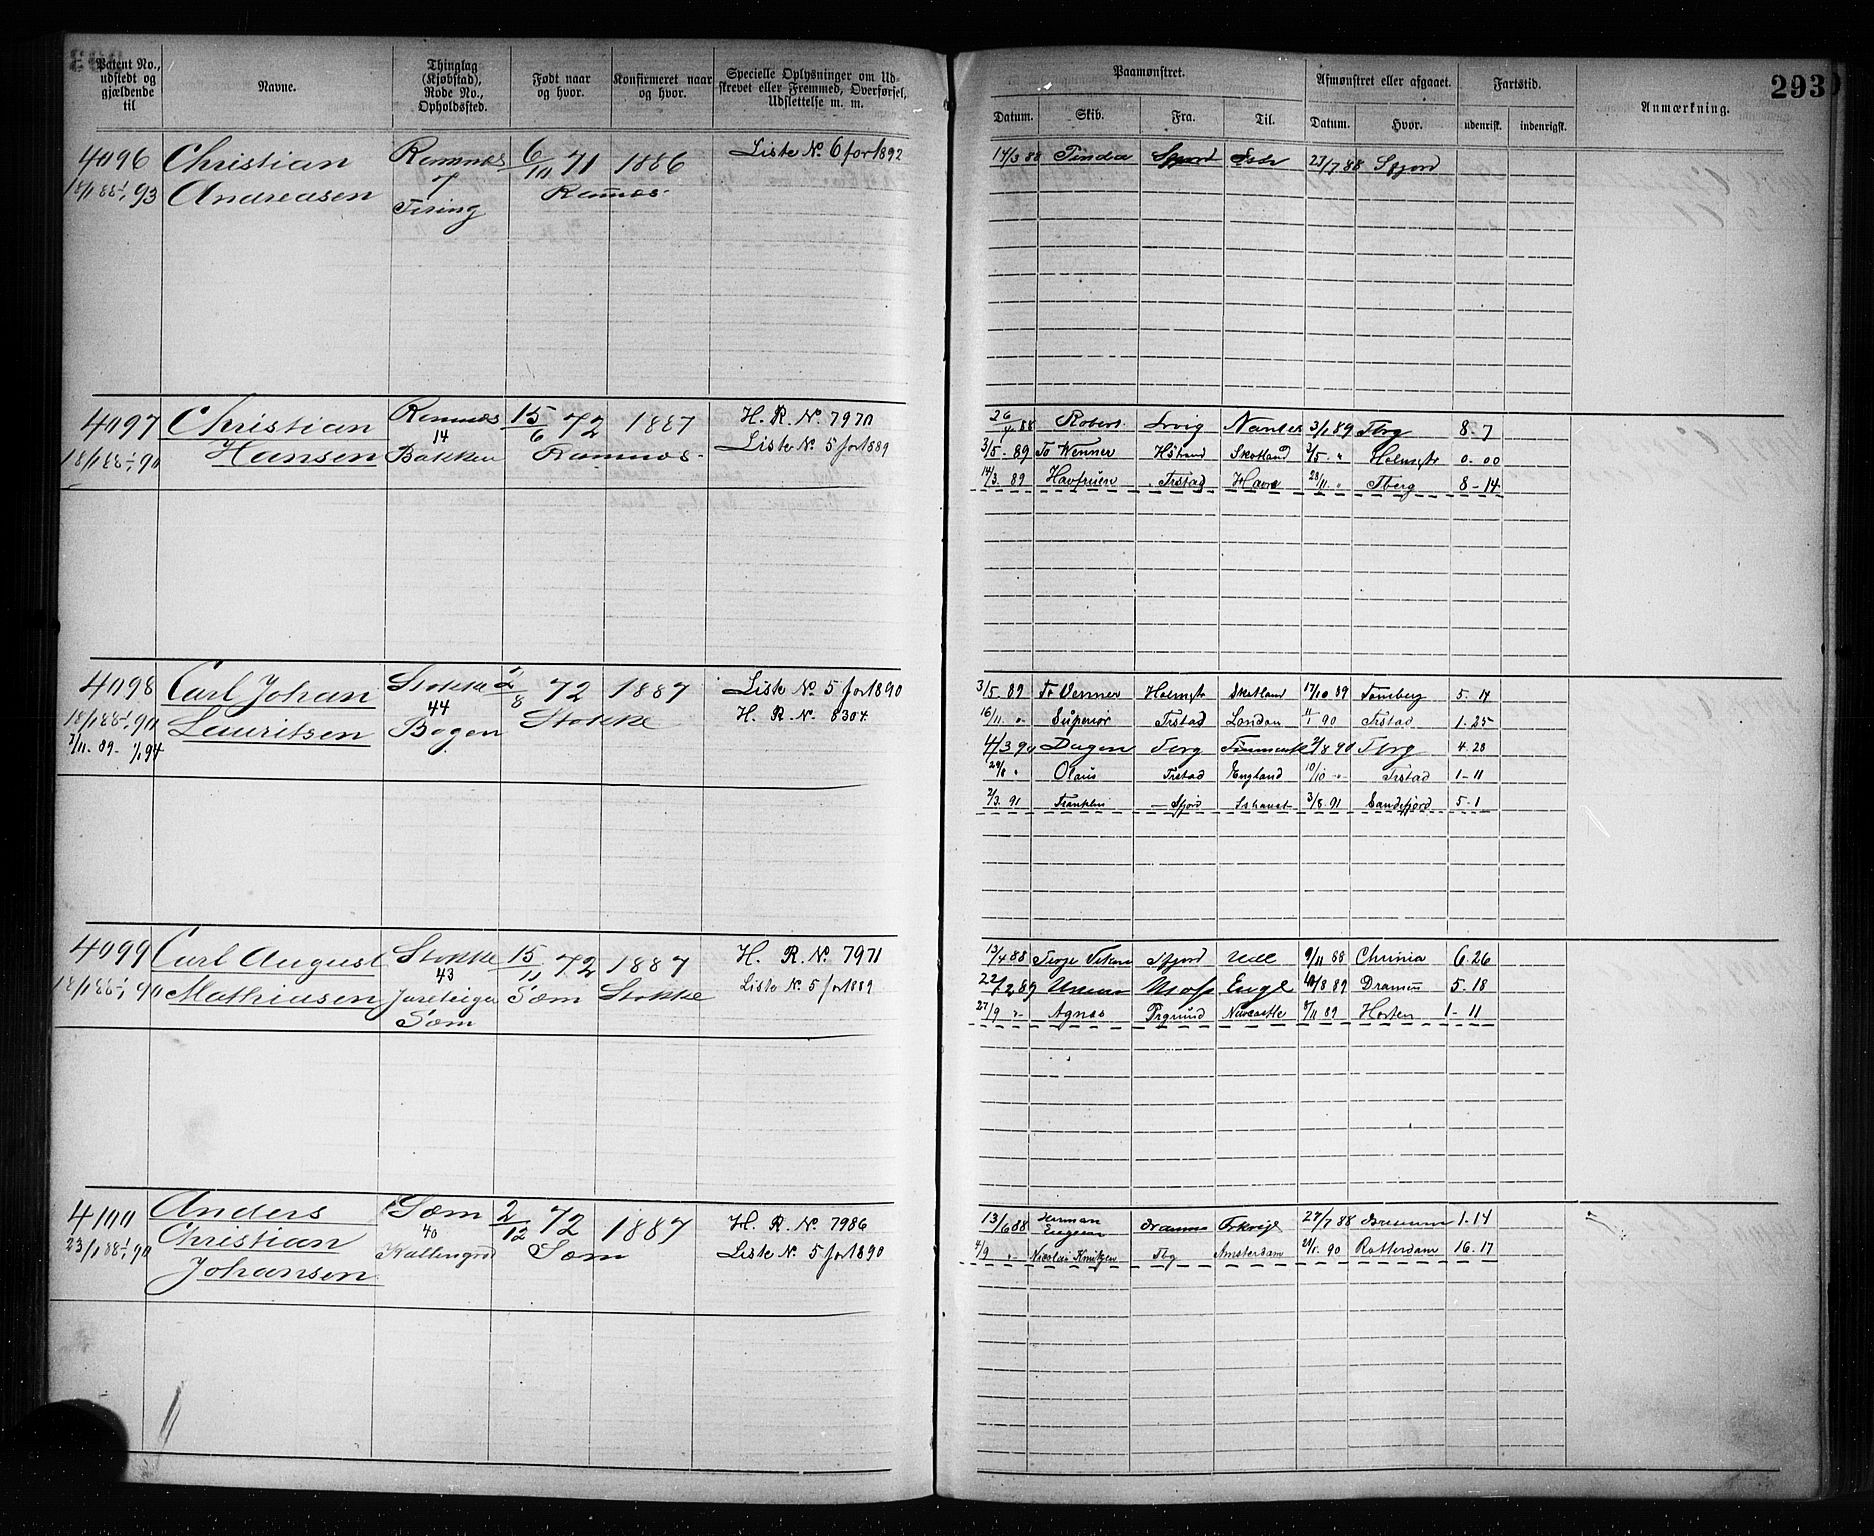 293
Patent No., udstedt og gjældende til
Navne.
Thinglag (Kjøbstad), Rode No., Opholdssted.
Født naar og hvor.
Konfirmeret naar og hvor.
Specielle Oplysninger om Udskrevet eller Fremmed, Overførsel, Udslettelse m. m.
Paamønstret.
Datum. Skib. Fra. Til.
Afmønstret eller afgaaet.
Datum. Hvor.
Fartstid.
udenrigs. indenrigs.
Anmærkning.
4096 Christian Ramnæs 6/10 71 1886 Liste No. 6 for 1892
18/1 88 1/1 93 Andreasen 7 Ramnæs
14/3 88 23/7 88 Sfjord
4097 Christian Ramnæs 15/6 72 1887 H. R. No. 7970
18/1 88 1/1 90 Hansen 14 Bakken Ramnæs Liste No. 5 for 1889
26/4 88 Robert Lrvig 3/1 89 Tbrg 8-7
3/5 - 89 Wenner Hstrand Skotland Holmestr 0-00
14/3 89 Havfruen Trstad Havre 28/11 " Tberg 8-14
4098 Carl Johan Stokke 72 1887 Liste No. 5 for 1890
18/1 88 1/1 90 Lauritsen 44 Stokke H. R. No. 8304
7/11 - 89 - 1/1 94 Bogen
3/5. 89 Venner Holmestr Skotland 17/10 89 Tonsberg 5-14
16/11 " Superior Trstad London 11/1 90 Trstad 1-25
4/3 90 Dagen Tbrg Tbrg 4-28
Olaus Trstad England 10/10 " Trstad 1-11
2/3. 91 Franklin Sfjord 3/8. 91 Sandefjord 5-1
4099 Carl August Stokke 15/11 72 1887 H. R. No. 7971
18/1 88 1/1 90 Mathiasen 43 Sæm Stokke Liste No. 5 for 1889
Sæm
13/4 88 Sfjord 9/11 88 6-26
22/2 89 Moss Engl 89 5-18
27/9 " Agnes Prgrund Newcastle 8/11 89 Horten 1-11
4100 Anders Sæm 2/12 72 1887 H. R. No. 7986
23/1 88 1/1 90 Christian 40 Sæm Liste No. 5 for 1890
Johansen
13/6 88 Herman 27/7 88 1-14
4/9 " Nicolai Knudtzen Tbg Amsterdam 90 Rotterdam 16-17